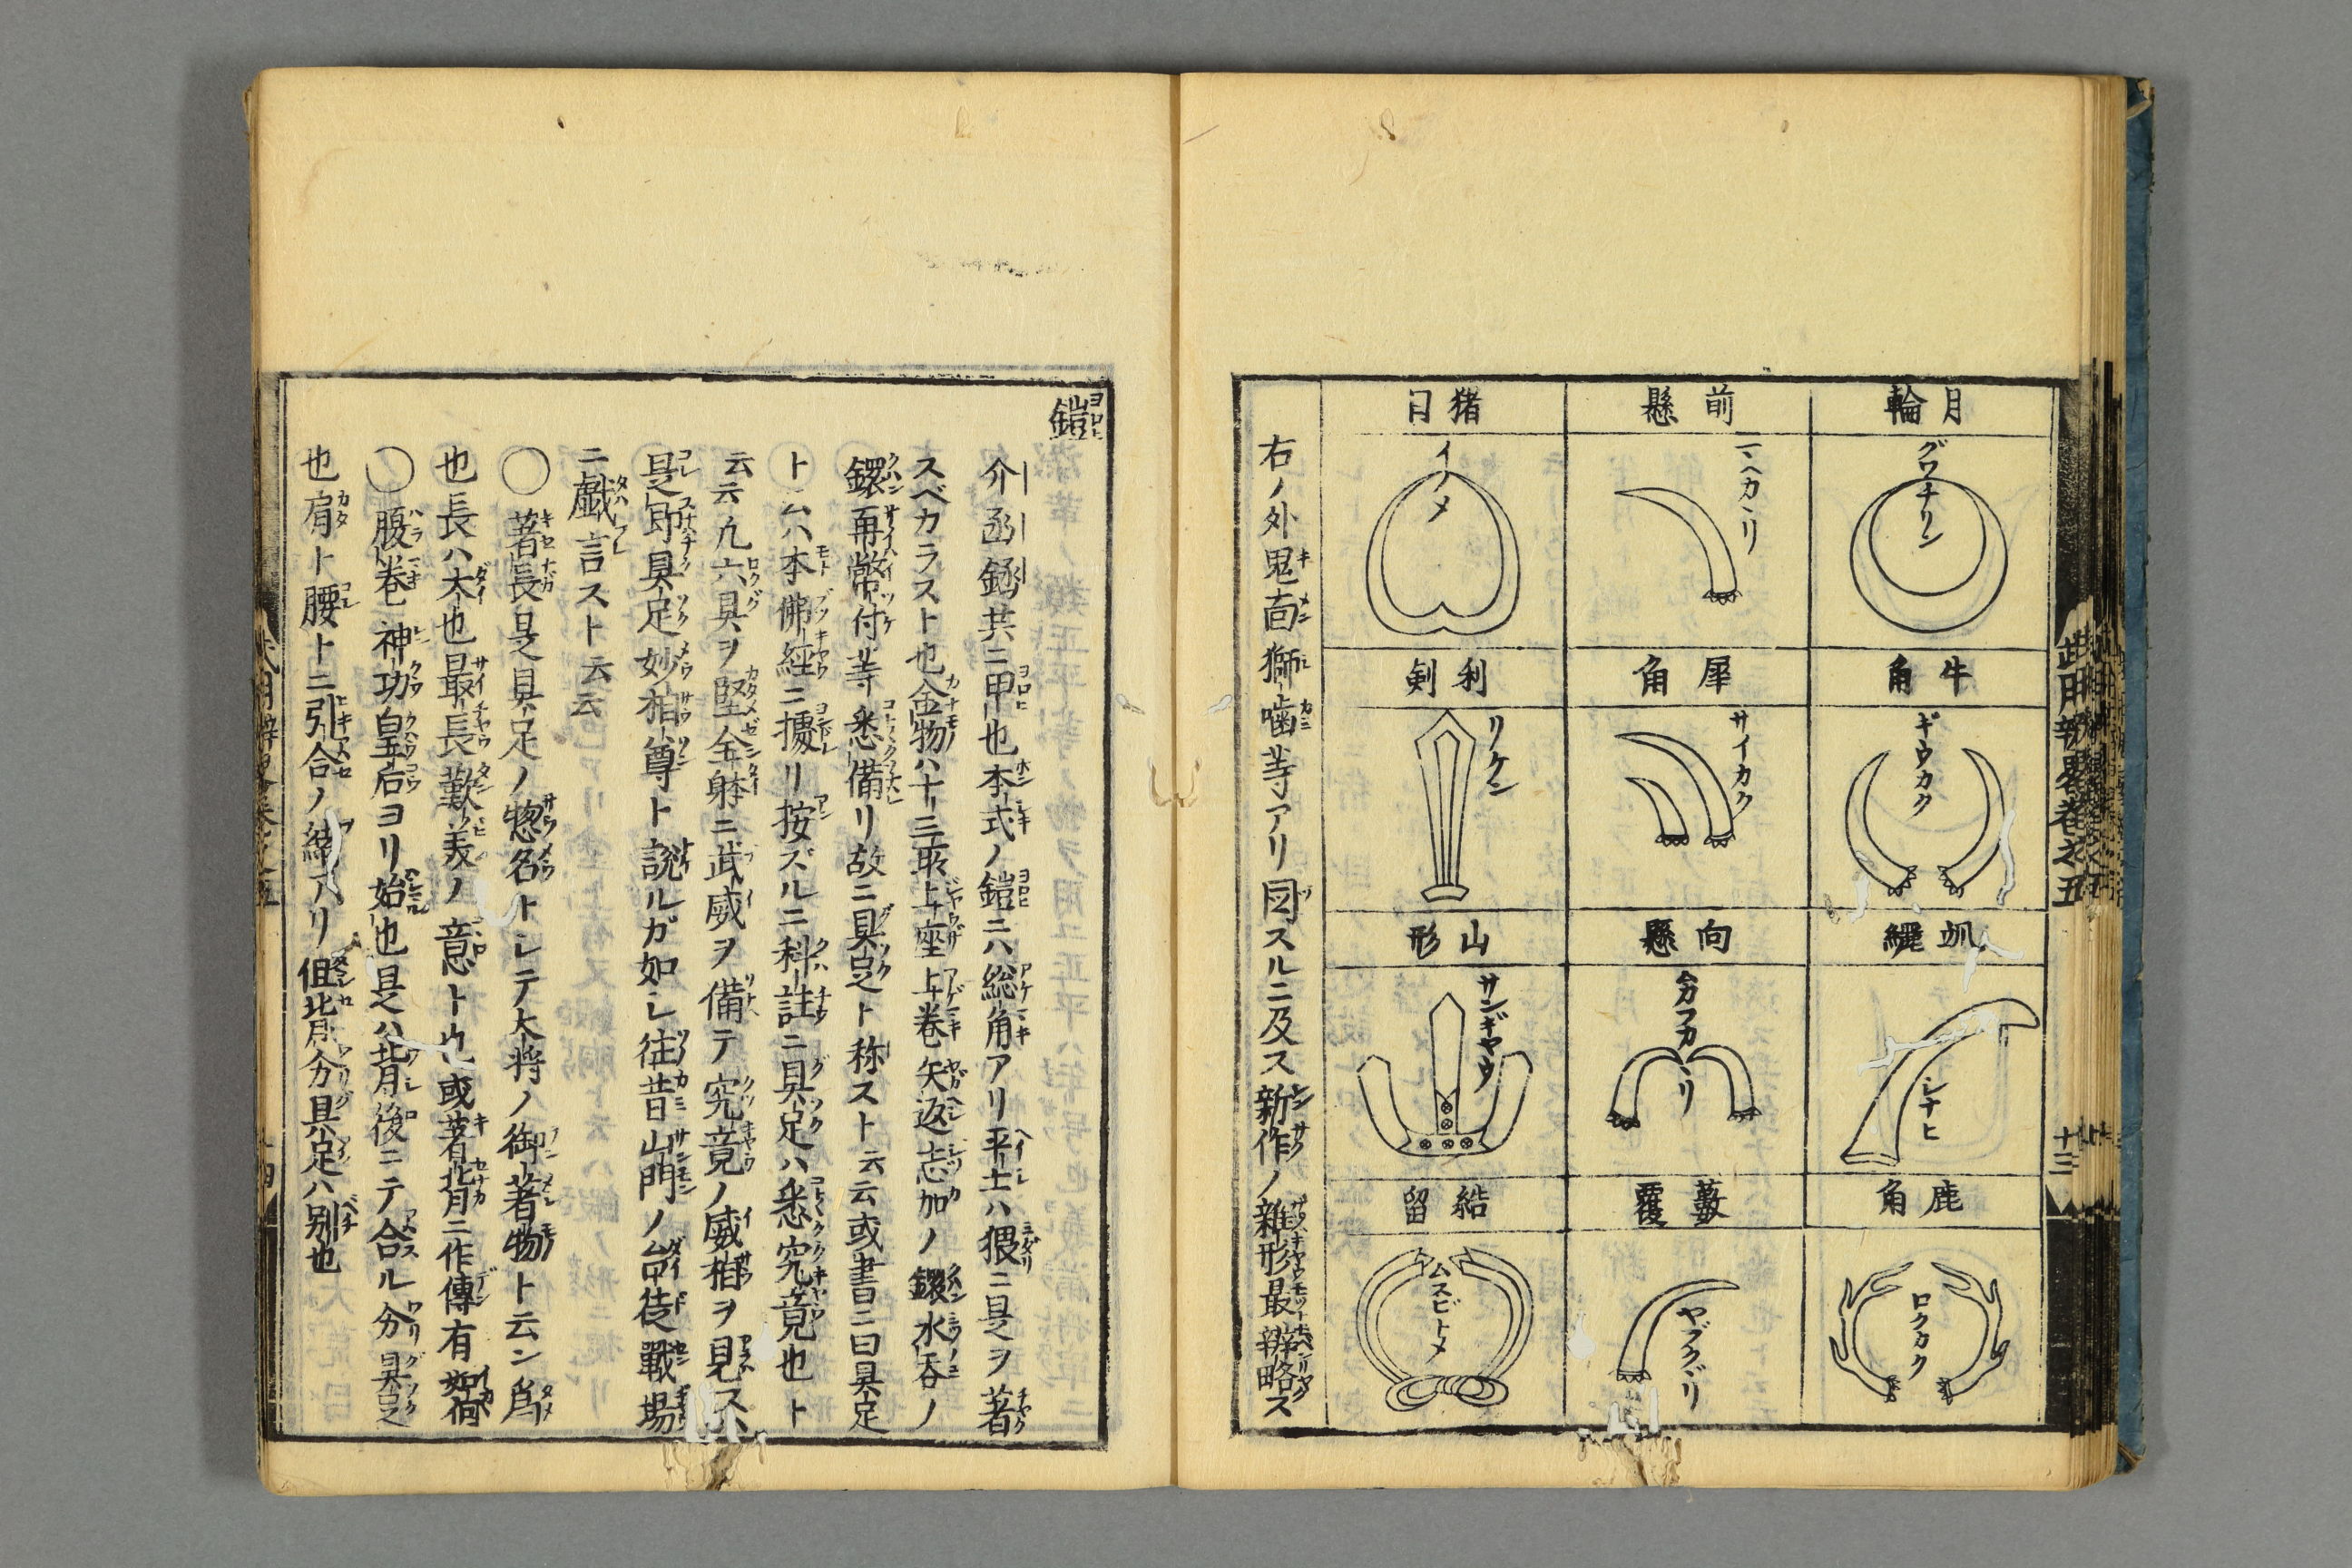 月輪
グワチリン
前懸
マヘカヽリ
猪目
イノメ
牛角
ギウカク
犀角
サイカク
利剣
リケン
シナヒ
向懸
向フカヽリ
山形
サンギヤウ
鹿角
ロクカク
藪覆
ヤブクヾリ
結留
ムスビトメ
右ノ外鬼面獅噛等アリ図スルニ及ス新作ノ雑形最辨略ス
武用辨畧巻之五
十三
鎧
介 函 鎧共ニ甲也本式ノ鎧ニハ総角アリ平士ハ猥ニ是ヲ著
スベカラスト也金物ハ十三最上座上巻矢返志加ノ鐶水呑ノ
鐶再幣付等悉備リ故ニ具足ト称スト云云或書ニ曰具足
ト云ハ本佛經ニ據リ按ズルニ科註ニ具足ハ悉究竟也ト
云云凡六具ヲ堅全躰ニ武威ヲ備テ究竟ノ威相ヲ見ス
是即具足妙相尊ト説ルガ如レ往昔山門ノ台徒戰場
ニ戯言スト云云
○著長是具足ノ惣名トレテ大将ノ御著物ト云ン為
也長ハ大也最長歎美ノ意ト也或著背ニ作傳有如何
○腹巻神功皇后ヨリ始也是ハ背後ニテ合ル分具足
也肩ト腰トニ引合ノ緒アリ但背分具足ハ別也